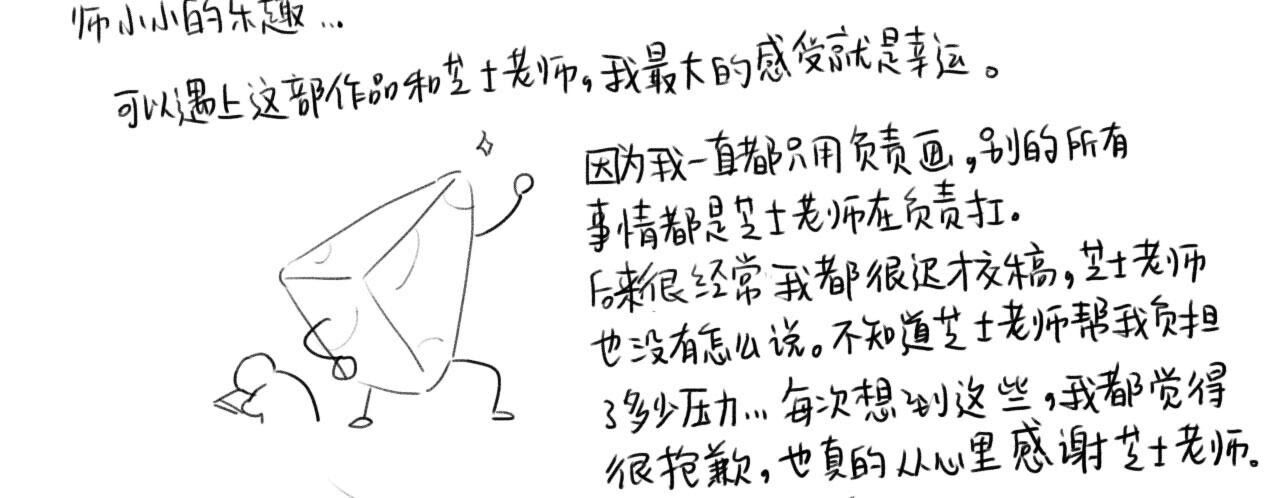 师小小的乐趣…
可以遇上这部作品和芝士老师，我最大的感受就是幸运。
因为我一直都只用负责画，别的所有
事情都是芝士老师在负责扛。
后来很经常我都很迟才交稿，芝士老师
也没有怎么说。不知道芝士老师帮我负担
了多少压力…每次想到这些，我都觉得
很抱歉，也真的从心里感谢芝士老师。